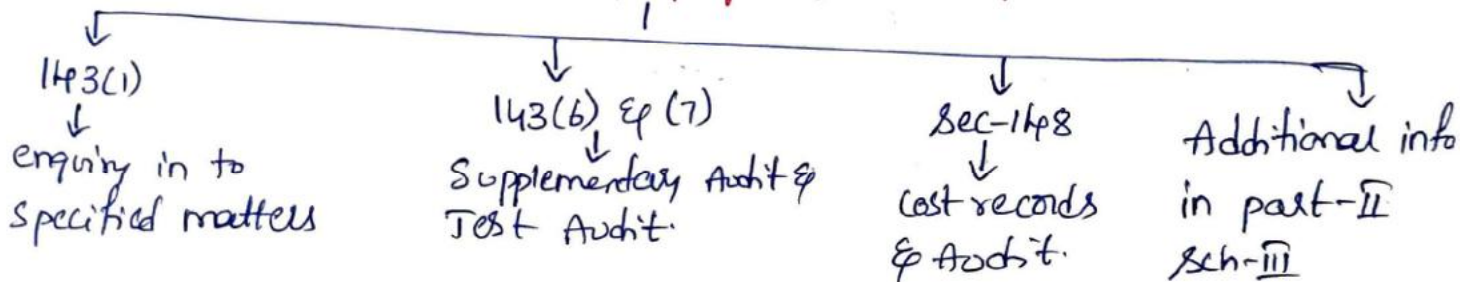 143(1)
enquiry in to
specified matters
143(6) & (7)
Supplementary Audit &
Test Audit.
Sec-148
cost records
& Audit.
Additional info
in part-II
Sch-III